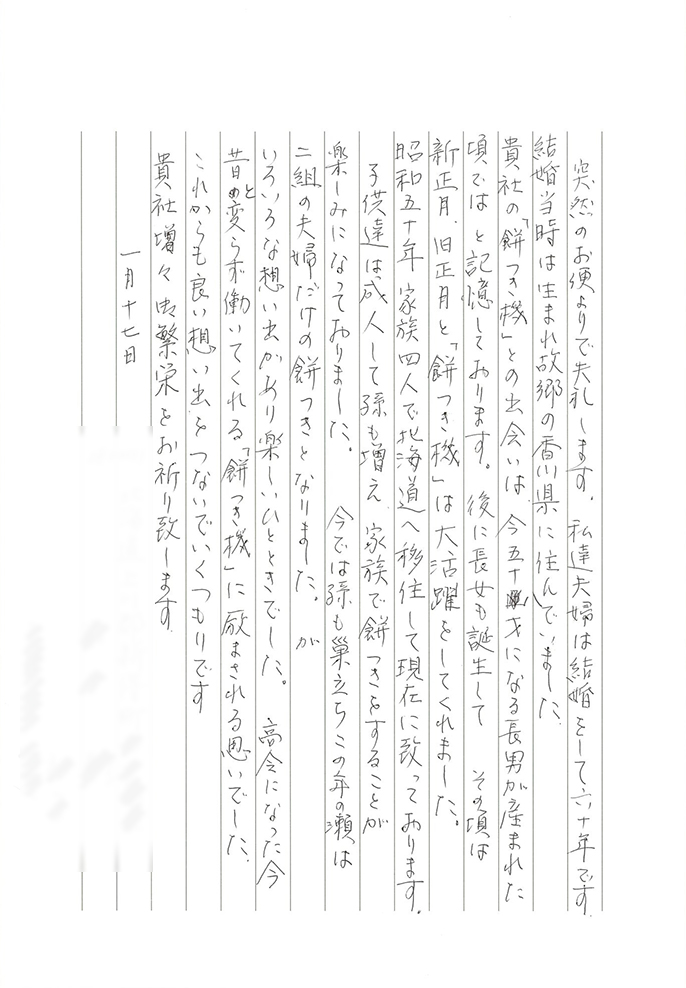 突然のお便よりで失礼します。私達夫婦は結婚をして六十年です
結婚当時は生まれ故郷の香川県に住んでいました
貴社の「餅つき機」との出会いは、今五十才になる長男が産まれた
頃ではと記憶しております。後に長女も誕生して その頃は
新正月、旧正月と「餅つき機」は大活躍をしてくれました。
昭和五十年 家族四人で北海道へ移住して現在に致っております。
子供達は成人して孫も増え 家族で餅つきをすることが
楽しみになっておりました。 今では孫も巣立ちこの年の瀬は
二組の夫婦だけの餅つきとなりました。が
いろいろな想い出があり楽しいひとときでした。 高令になった今
昔と変らず働いてくれる「餅つき機」に励まされる思いでした、
これからも良い想い出をつないでいくつもりです
貴社増々御繁栄をお祈り致します
一月十七日